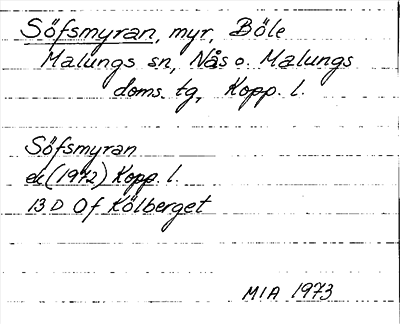 Söfsmyran, myr, Böle
Malungs sn, Nås o. Malungs
doms. tg, Kopp. l.
Söfsmyran
ek (1972) Kopp. l.
13 D Of Kölberget
MIA 1973